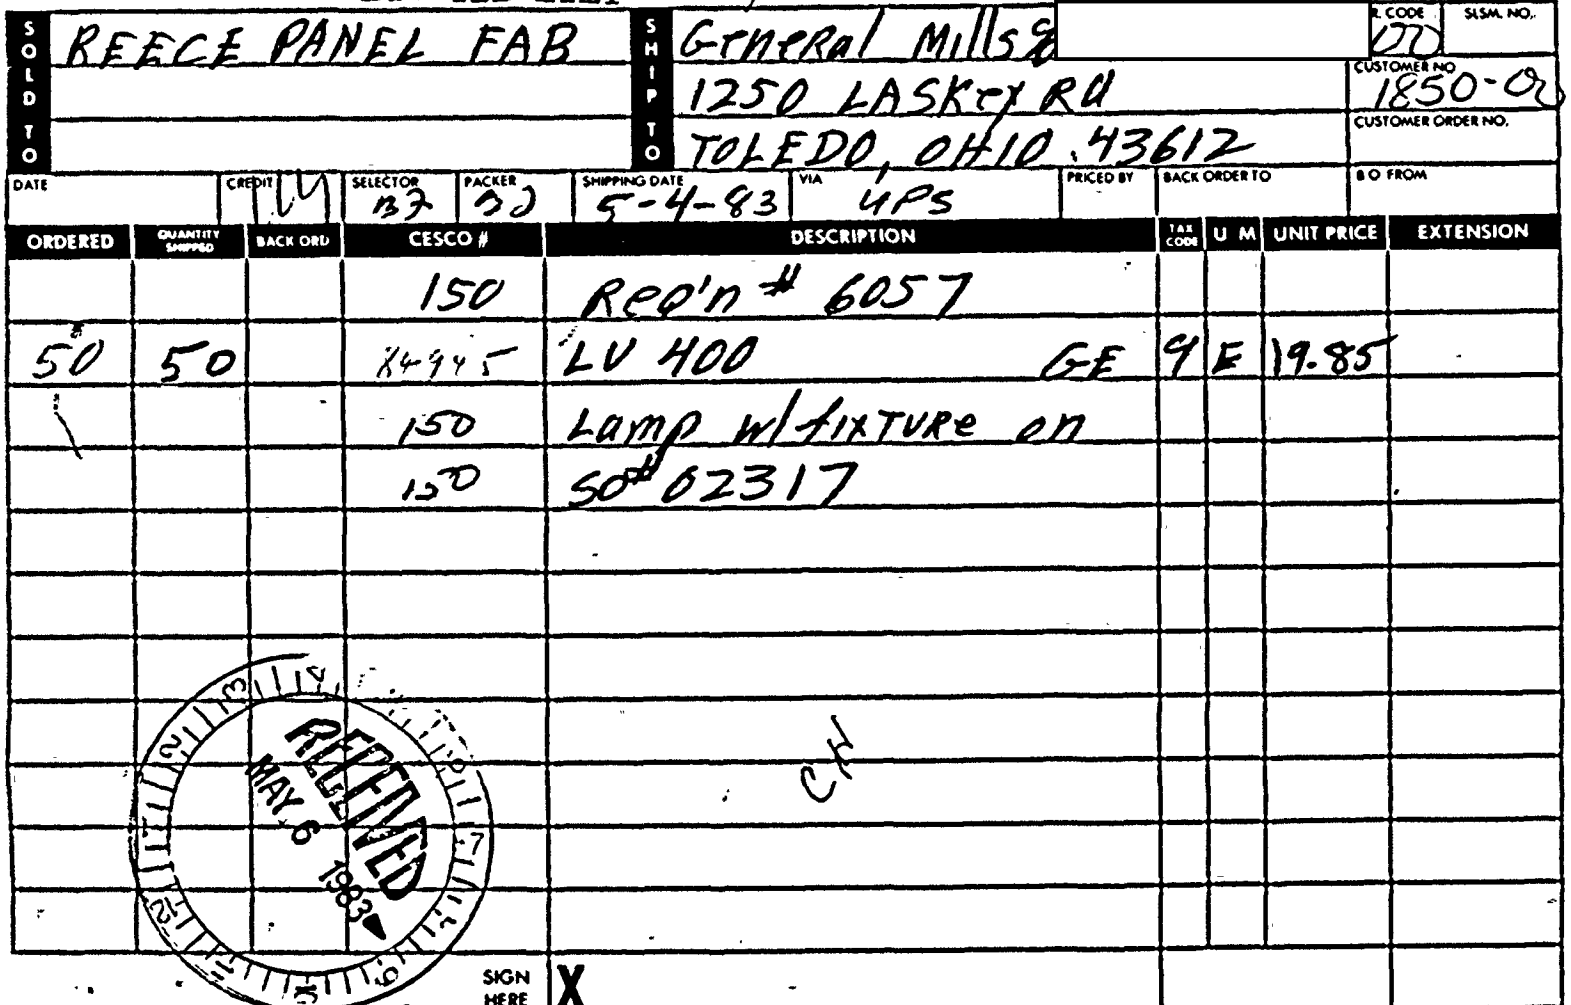 SOLD TO
REECE PANEL FAB
SHIP TO
General Mills %
1250 LASKey Rd
TOLEDO, OHIO . 43612
R. CODE
SLSM. NO.
CUSTOMER NO
1850-
CUSTOMER ORDER NO.
DATE
CREDIT
SELECTOR
PACKER
SHIPPING DATE
5-4-83
VIA
UPS
PRICED BY
BACK ORDER TO
B O FROM
ORDERED QUANTITY SHIPPED BACK ORD CESCO # DESCRIPTION TAX CODE U M UNIT PRICE EXTENSION
150 Req'n # 6057
50 50 LV 400 GE 9 E 19.85
150 Lamp w/fixTURe on
150 SO# 02317
CH
RECEIVED
MAY 6 1983
SIGN HERE X